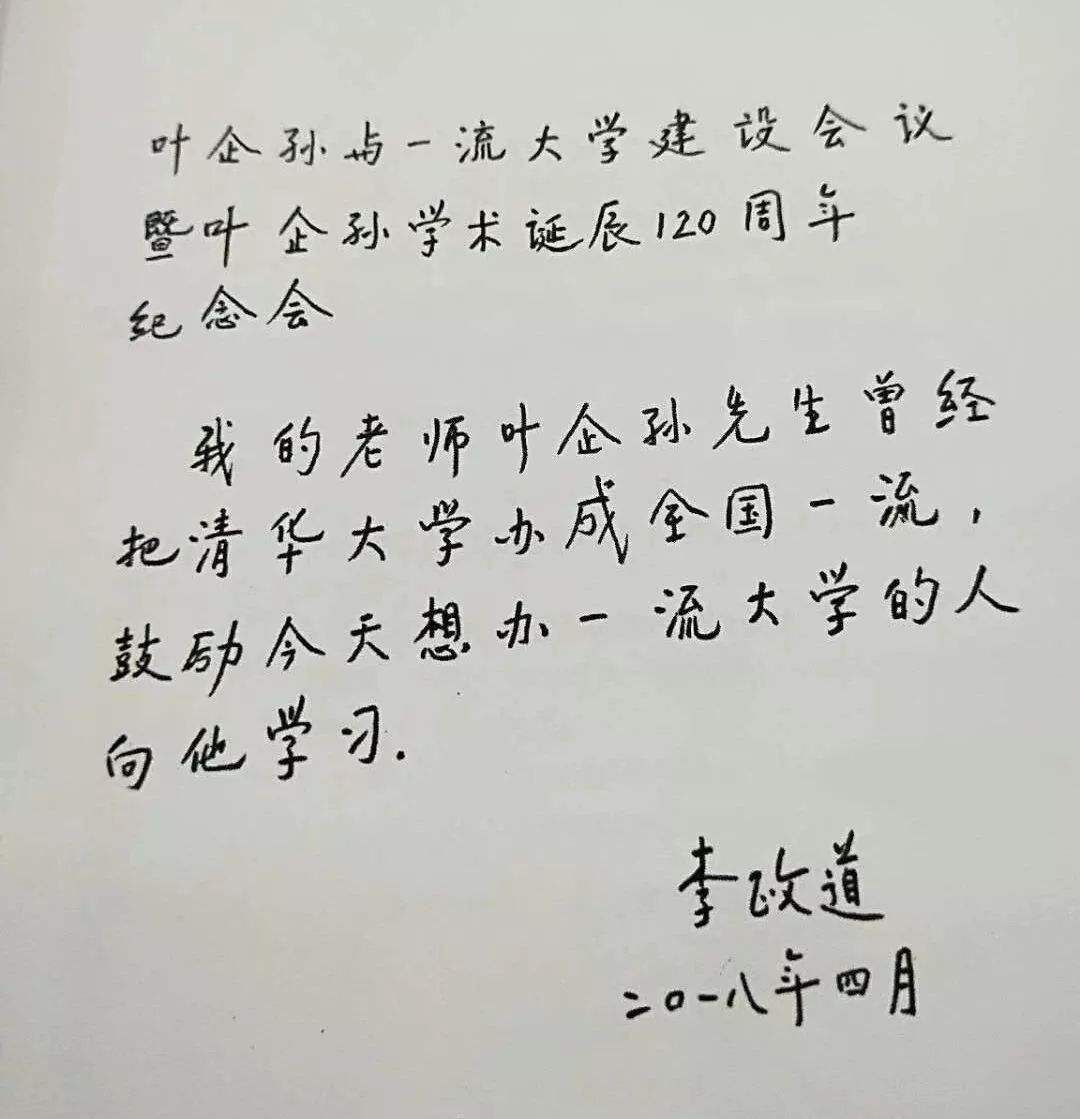 叶企孙与一流大学建设会议
暨叶企孙学术诞辰120周年
纪念会
我的老师叶企孙先生曾经
把清华大学办成全国一流，
鼓励今天想办一流大学的人
向他学习.
李政道
二〇一八年四月